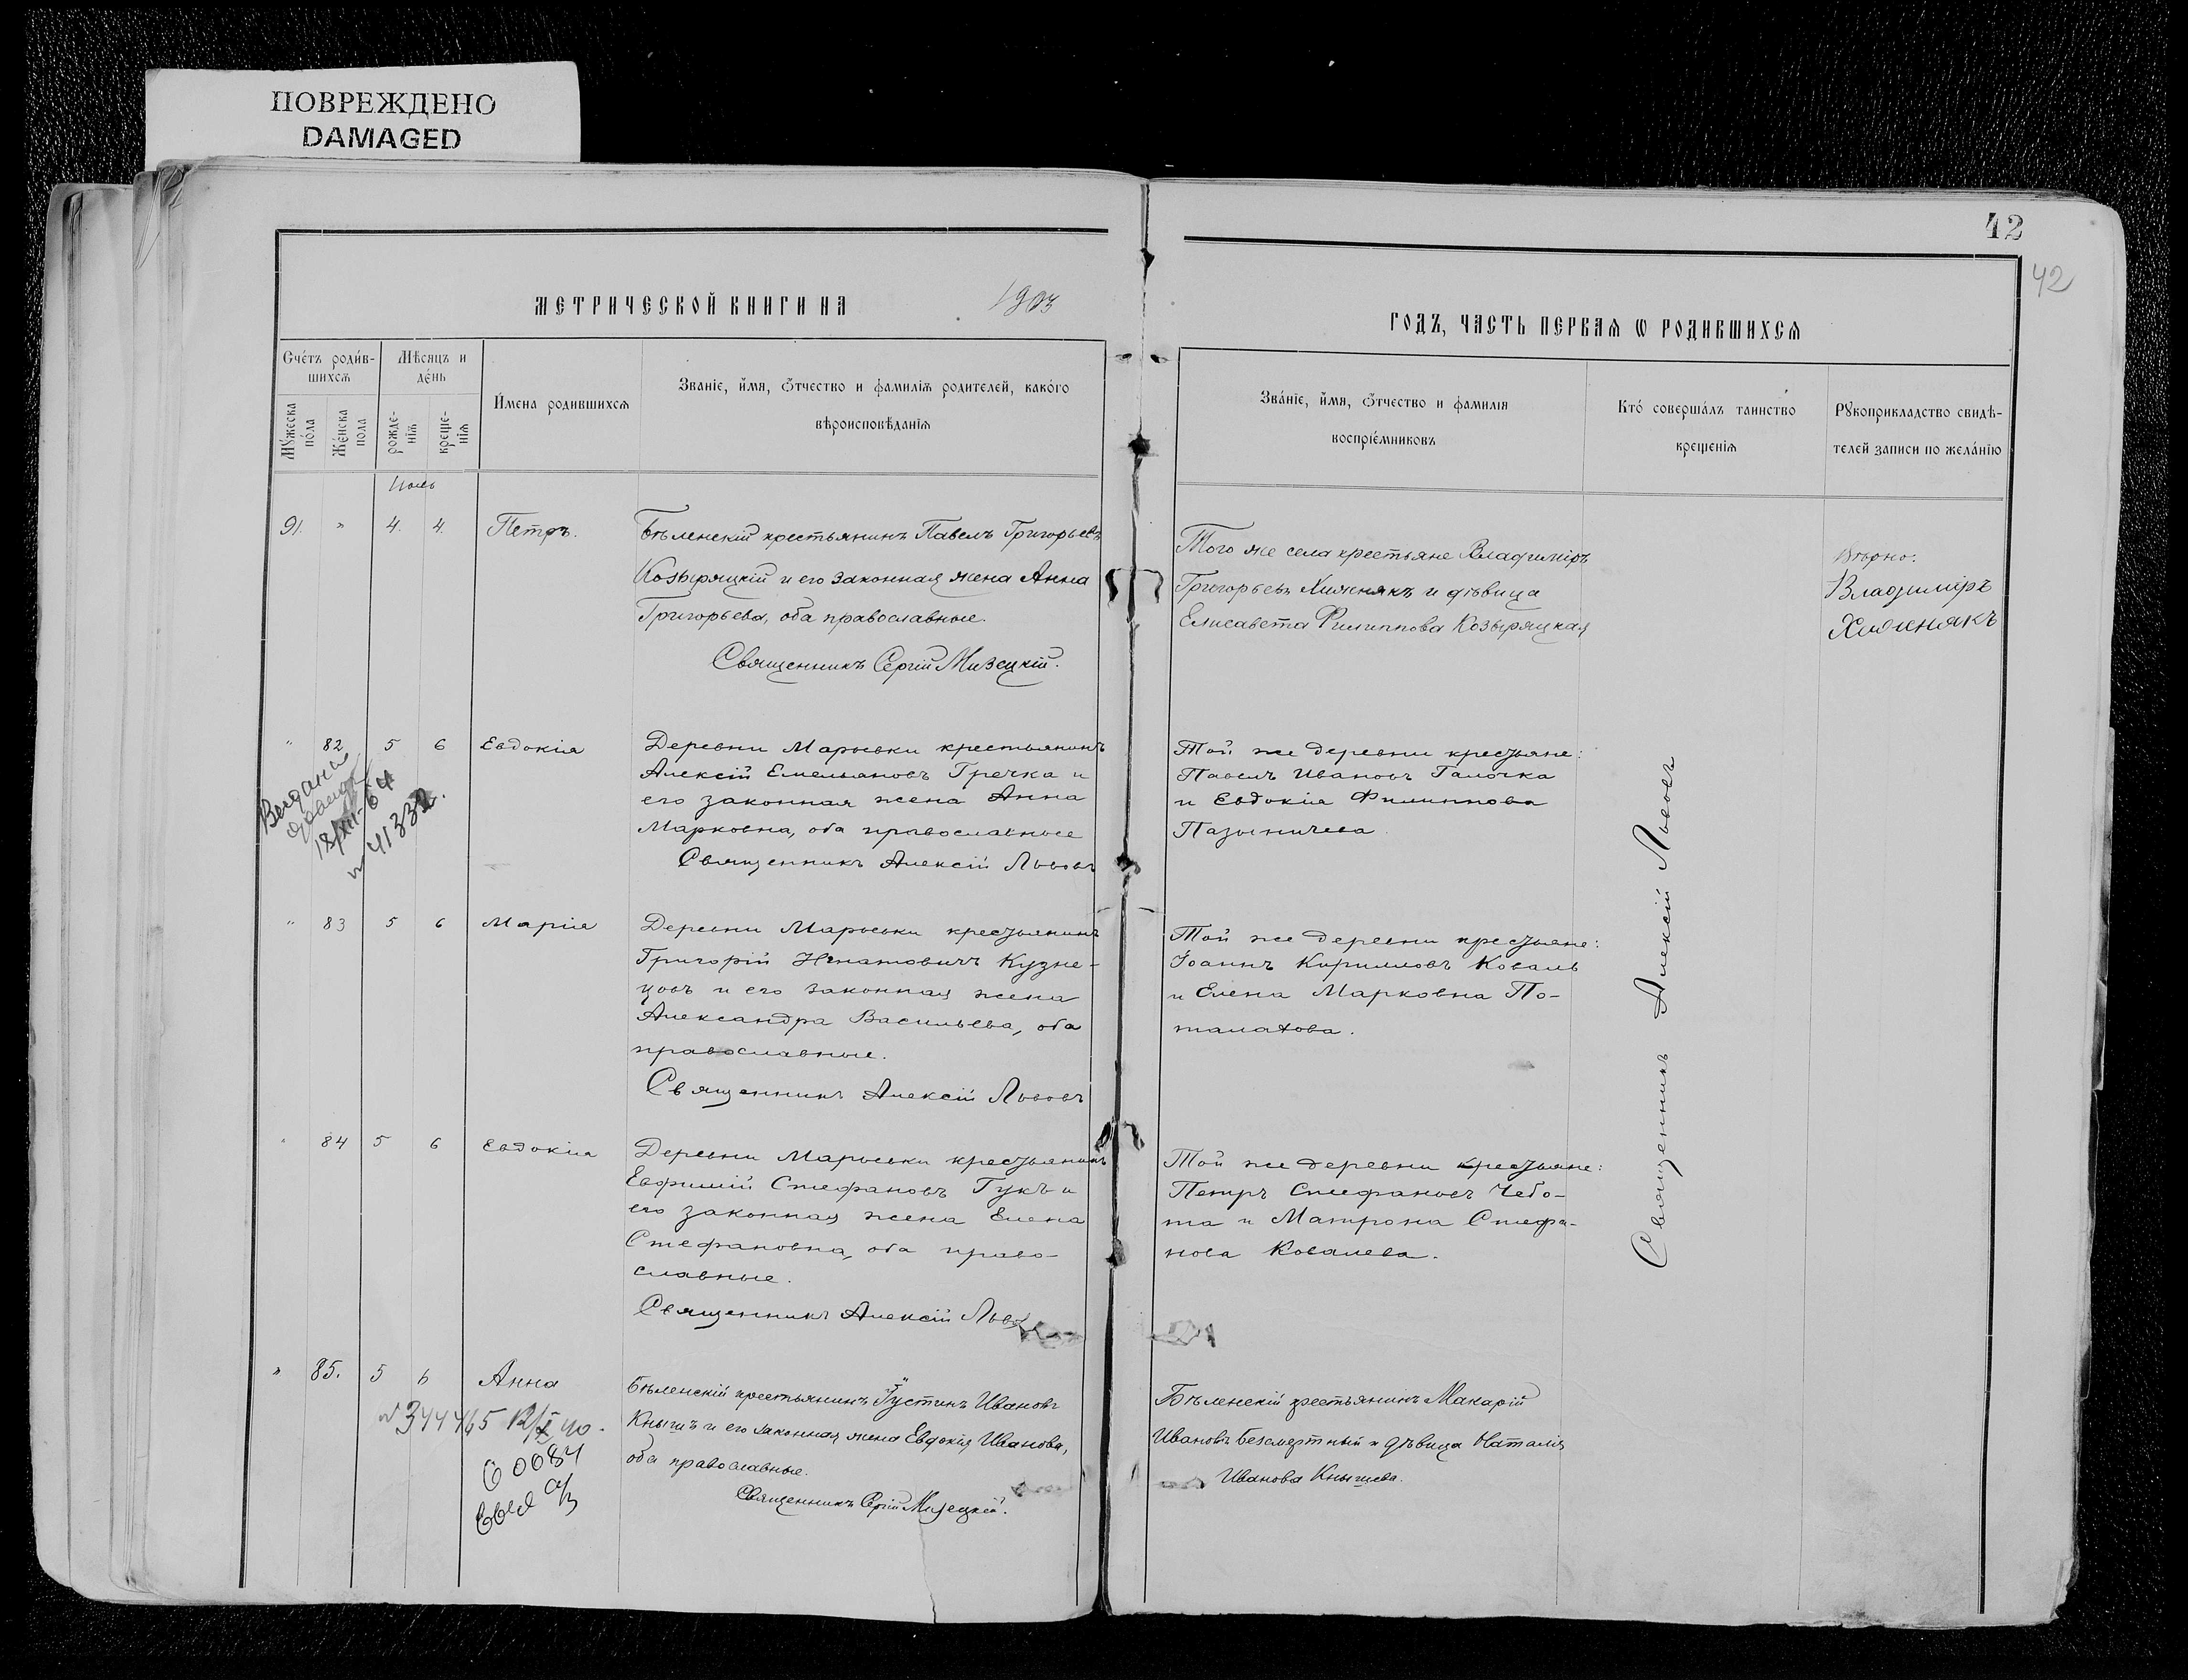 ПОВРЕЖДЕНО
DAMAGED
42
42
МЕТРИЧЕСКОЙ КНИГИ НА 1903
ГОДЪ, ЧАСТЬ ПЕРВАѦ Ѡ РОДИВШИХСѦ
Счéтъ роди́в-
шихсѧ
Мѣсяцъ и
де́нь
Мꙋ́жеска
по́ла
Же́нска
пола
рожде-
нїѧ
креще-
нїѧ
И҆́мена родившихсѧ
Званїе, и҆́мя, ѻ҆́тчество и фамилїѧ родителей, како́го
вѣроисповѣ́данїѧ
Зва́нїе, и҆́мя, ѻ҆́тчество и фамилїя
воспрїе́мниковъ
Кто́ соверша́лъ таинство
крещенїѧ
Рꙋкоприкладство свидѣ-
телей записи по жела́нїю
Іюль
91. " 4. 4. Петръ.
Бѣленскій крестьянинъ Павелъ Григорьевъ
Козыряцкій и его законная жена Анна
Григорьева, оба православные.
Священникъ Сергій Мизецкій.
Того же села крестьяне Владиміръ
Григорьевъ Хижнякъ и дѣвица
Елисавета Филиппова Козыряцкая
Вѣрно:
Владиміръ
Хижнякъ
" 82 5 6 Евдокія
18/XII-64
41332.
Деревни Марьевки крестьянинъ
Алексій Емельяновъ Гречка и
его законная жена Анна
Марковна, оба православные
Священникъ Алексій Львовъ
Той же деревни крестьяне:
Павелъ Ивановъ Галочка
и Евдокія Филиппова
Пазыничева
" 83 5 6 Марія
Деревни Марьевки крестьянинъ
Григорій Игнатовичъ Кузне-
цовъ и его законная жена
Александра Васильева, оба
православные.
Священникъ Алексій Львовъ
Той же деревни крестьяне:
Іоаннъ Кирилловъ Коваль
и Елена Марковна По-
талахова.
" 84 5 6 Евдокія
Деревни Марьевки крестьянинъ
Евфимій Стефановъ Гукъ и
его законная жена Елена
Стефановна, оба право-
славные.
Священникъ Алексій Львовъ
Той же деревни крестьяне:
Петръ Стефановъ Чебо-
та и Матрона Стефа-
нова Ковалева.
Священникъ Алексій Львовъ
" 85. 5 6 Анна
№ 344465 12/X 40.
60084
Бѣленскій крестьянинъ Густинъ Ивановъ
Кнышъ и его законная жена Евдокія Иванова,
оба православные.
Священникъ Сергій Мизецкій.
Бѣленскій крестьянинъ Макарій
Ивановъ Безсмертный и дѣвица Наталія
Иванова Кнышева.